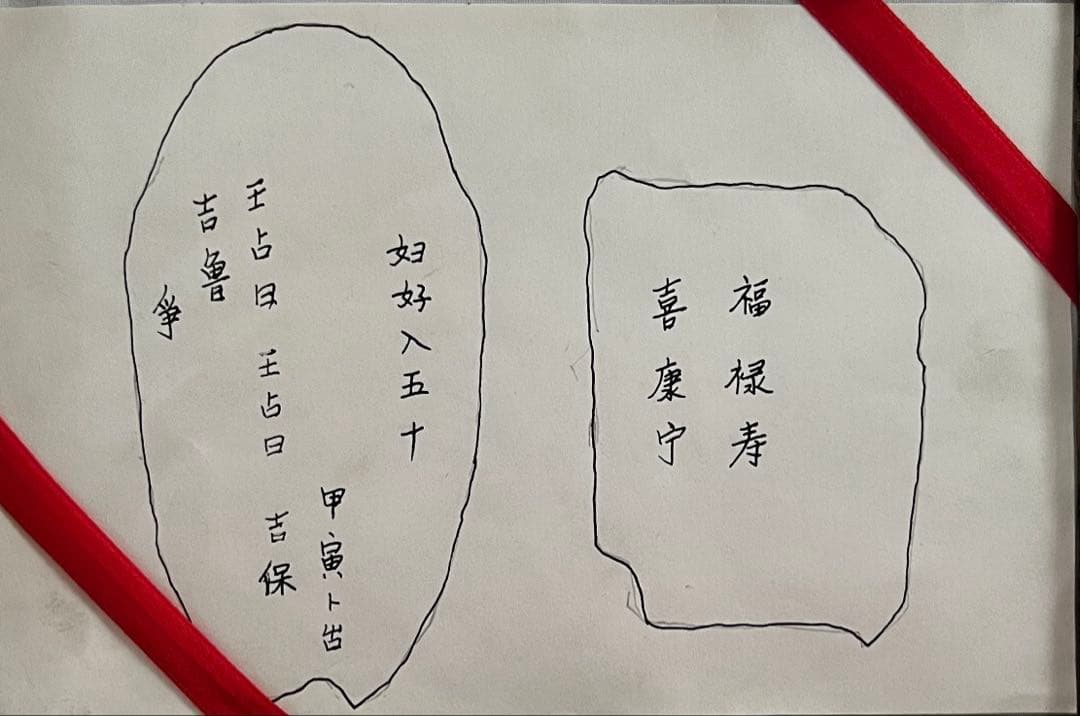 福禄寿
喜康宁
妇好入五十
甲寅卜
王占曰 王占曰 吉保
吉鲁
爭